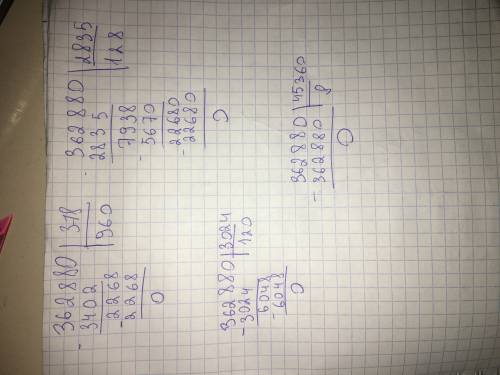 - 362880 | 378
3402 | 960
- 2268
2268
0
- 362880 | 2835
2835 | 128
- 7938
5670
- 22680
22680
0
362880 | 3024
- 3024 | 120
- 6048
6048
0
- 362880 | 45360
362880 | 8
0